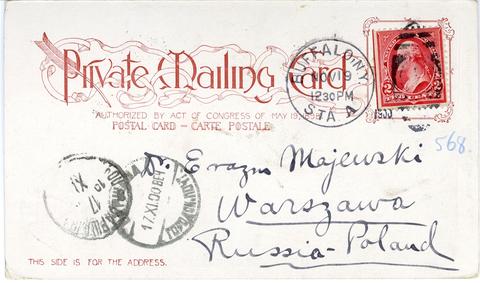 Private Mailing Card
AUTHORIZED BY ACT OF CONGRESS OF MAY 19, 1898.
POSTAL CARD – CARTE POSTALE
BUFFALO, N.Y.
NOV 19
12 30 PM
STA. A
1900
2 2
568.
Dr. Erazm Majewski
Warszawa
Russia-Poland
17 XI 00
THIS SIDE IS FOR THE ADDRESS.